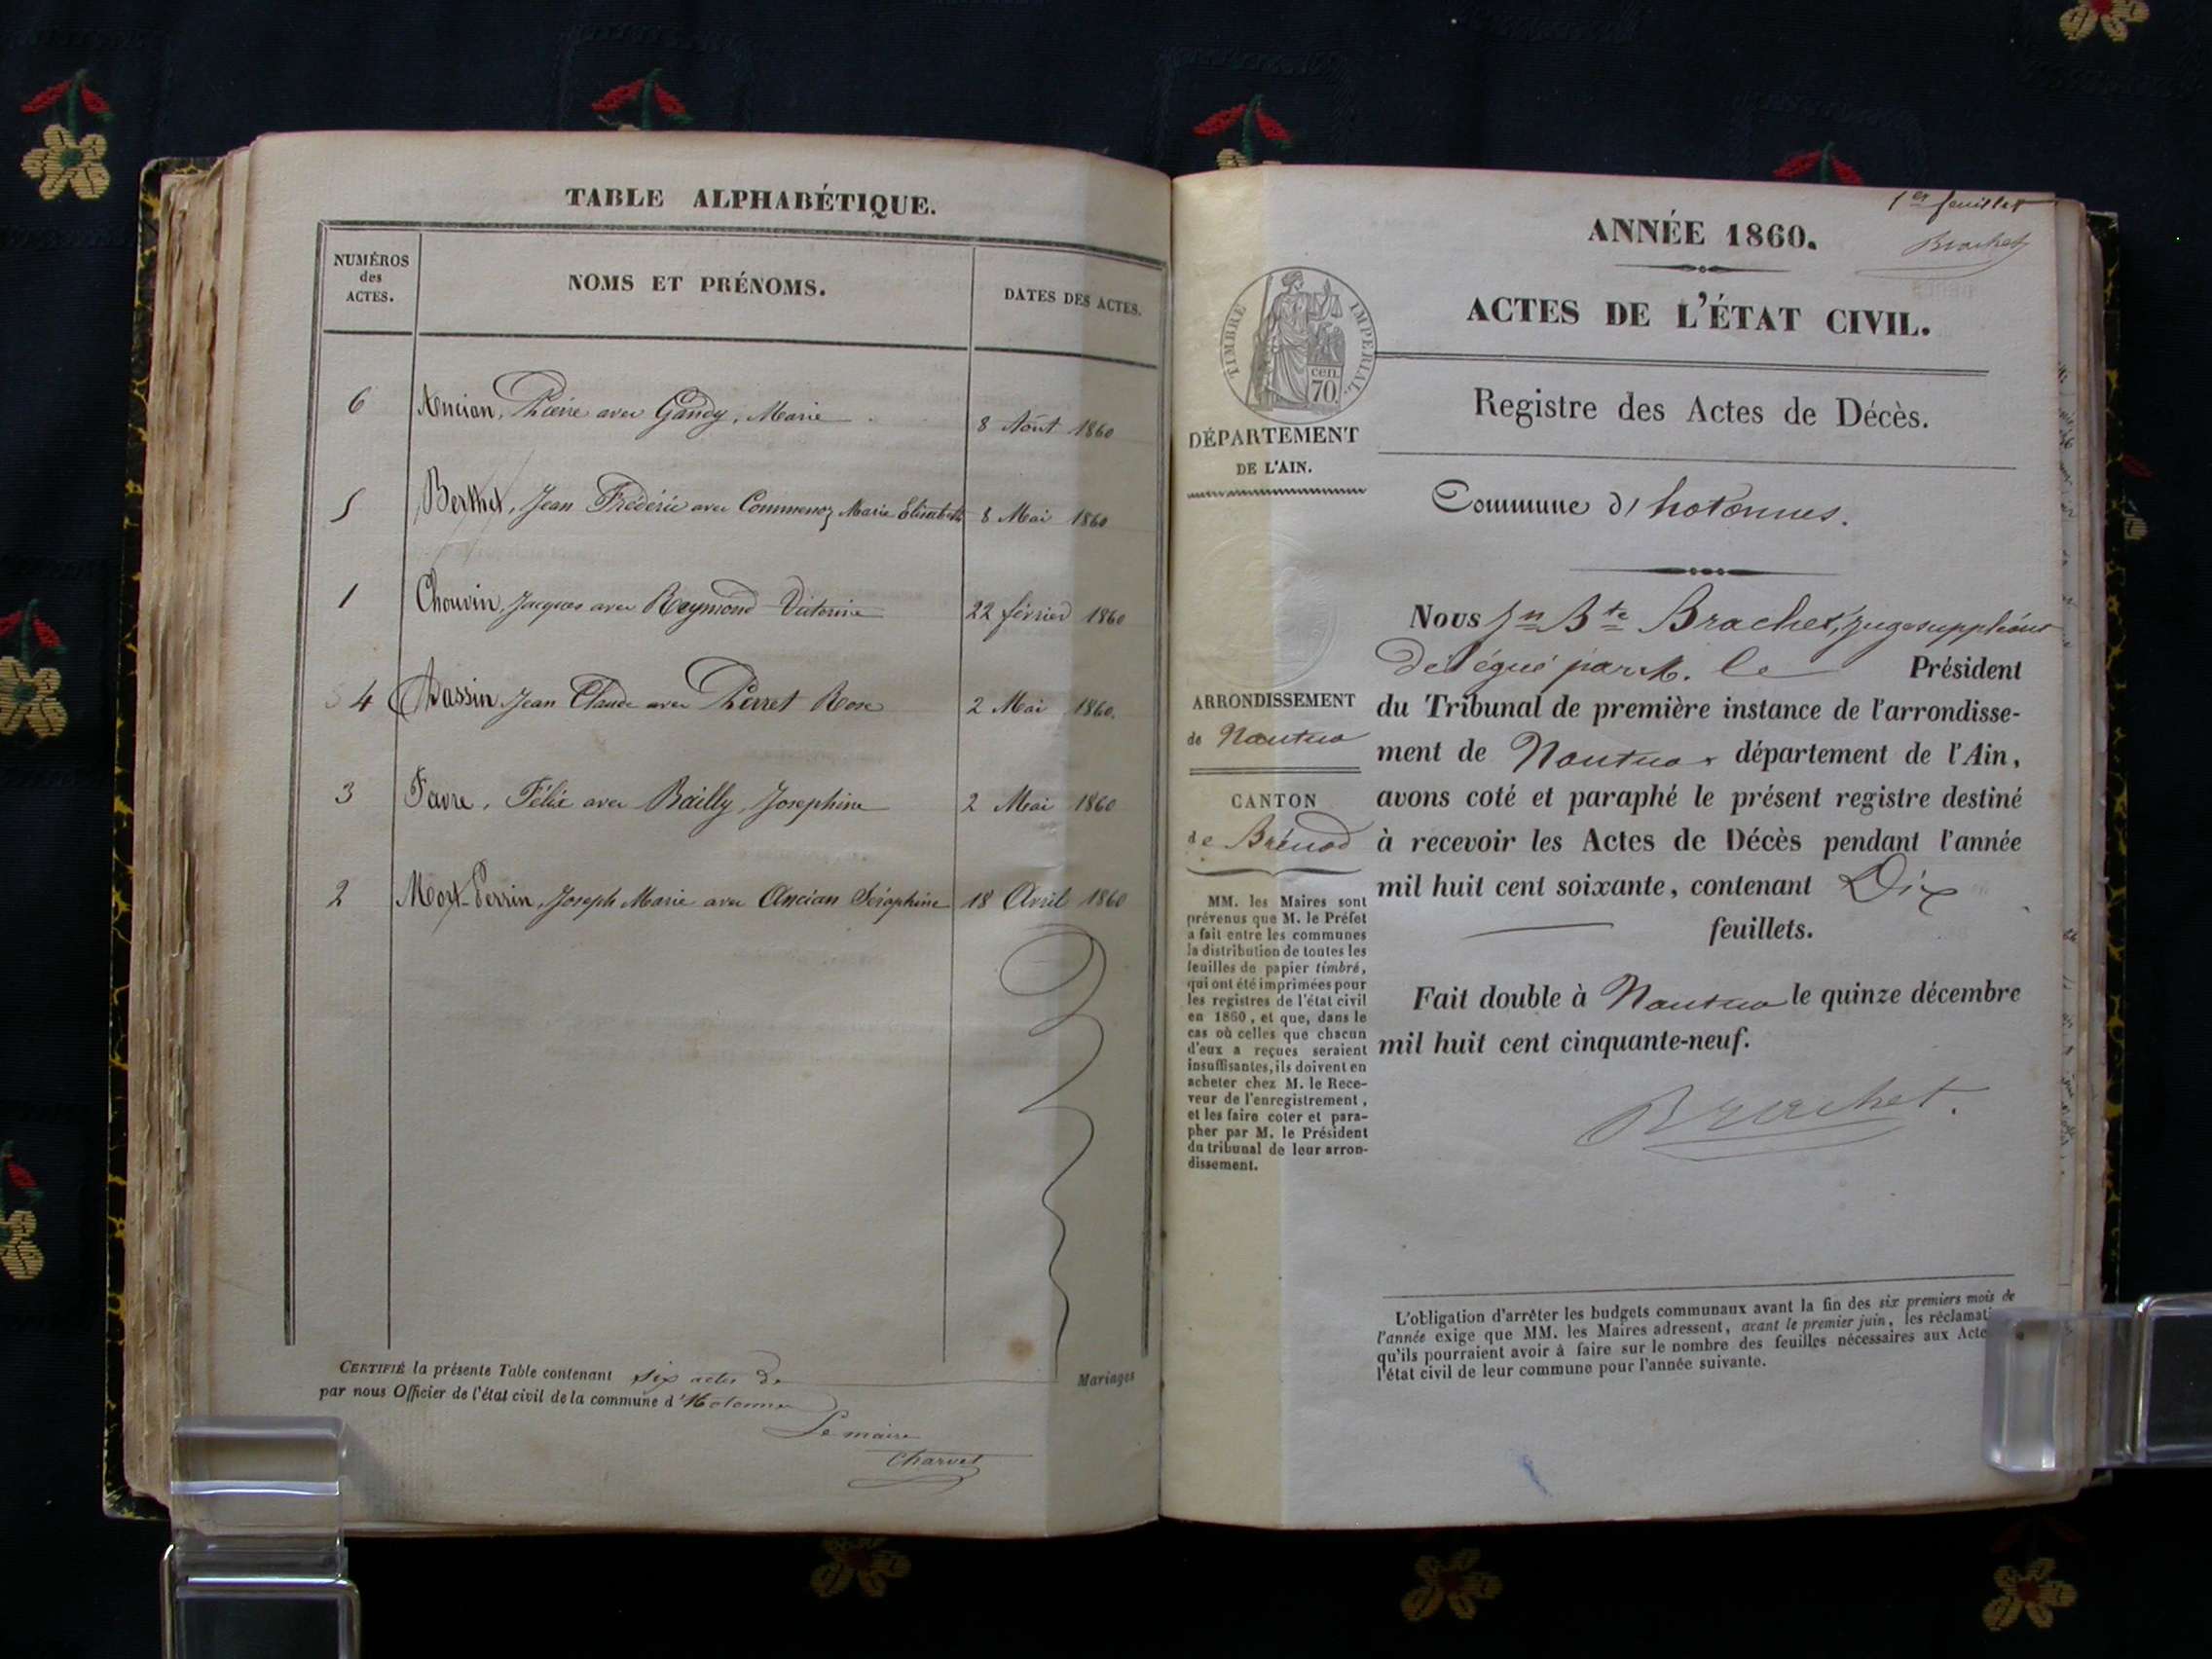 TABLE ALPHABÉTIQUE.
NUMÉROS
des
ACTES.
NOMS ET PRÉNOMS.
DATES DES ACTES.
6 Ancian, Pierre avec Gandy, Marie 8 Août 1860
5 Berthet, Jean Frédéric avec Commenoz Marie Elisabeth 8 Mai 1860
1 Chouvin, Jacques avec Reymond Victorine 22 février 1860
4 Dassin Jean Claude avec Perret Rose 2 Mai 1860.
3 Favre, Félix avec Bailly, Josephine 2 Mai 1860
2 Perrin, Joseph Marie avec Ancian Séraphine 18 Avril 1860
CERTIFIÉ la présente Table contenant six actes de Mariages
par nous Officier de l'état civil de la commune d'Hotonnes
Le maire
Charvet
1er feuillet
Brachet
ANNÉE 1860.
ACTES DE L'ÉTAT CIVIL.
TIMBRE IMPÉRIAL.
cen.
70.
DÉPARTEMENT
DE L'AIN.
Registre des Actes de Décès.
Commune d'hotonnes.
ARRONDISSEMENT
de Nantua
CANTON
de Brénod
MM. les Maires sont
prévenus que M. le Préfet
a fait entre les communes
la distribution de toutes les
feuilles de papier timbré,
qui ont été imprimées pour
les registres de l'état civil
en 1860, et que, dans le
cas où celles que chacun
d'eux a reçues seraient
insuffisantes, ils doivent en
acheter chez M. le Rece-
veur de l'enregistrement,
et les faire coter et para-
pher par M. le Président
du tribunal de leur arron-
dissement.
Nous Jn Bte Brachet, juge suppléant
délégué par M. le Président
du Tribunal de première instance de l'arrondisse-
ment de Nantua département de l'Ain,
avons coté et paraphé le présent registre destiné
à recevoir les Actes de Décès pendant l'année
mil huit cent soixante, contenant Dix
feuillets.
Fait double à Nantua le quinze décembre
mil huit cent cinquante-neuf.
Brachet.
L'obligation d'arrêter les budgets communaux avant la fin des six premiers mois de
l'année exige que MM. les Maires adressent, avant le premier juin, les réclamati
qu'ils pourraient avoir à faire sur le nombre des feuilles nécessaires aux Acte
l'état civil de leur commune pour l'année suivante.